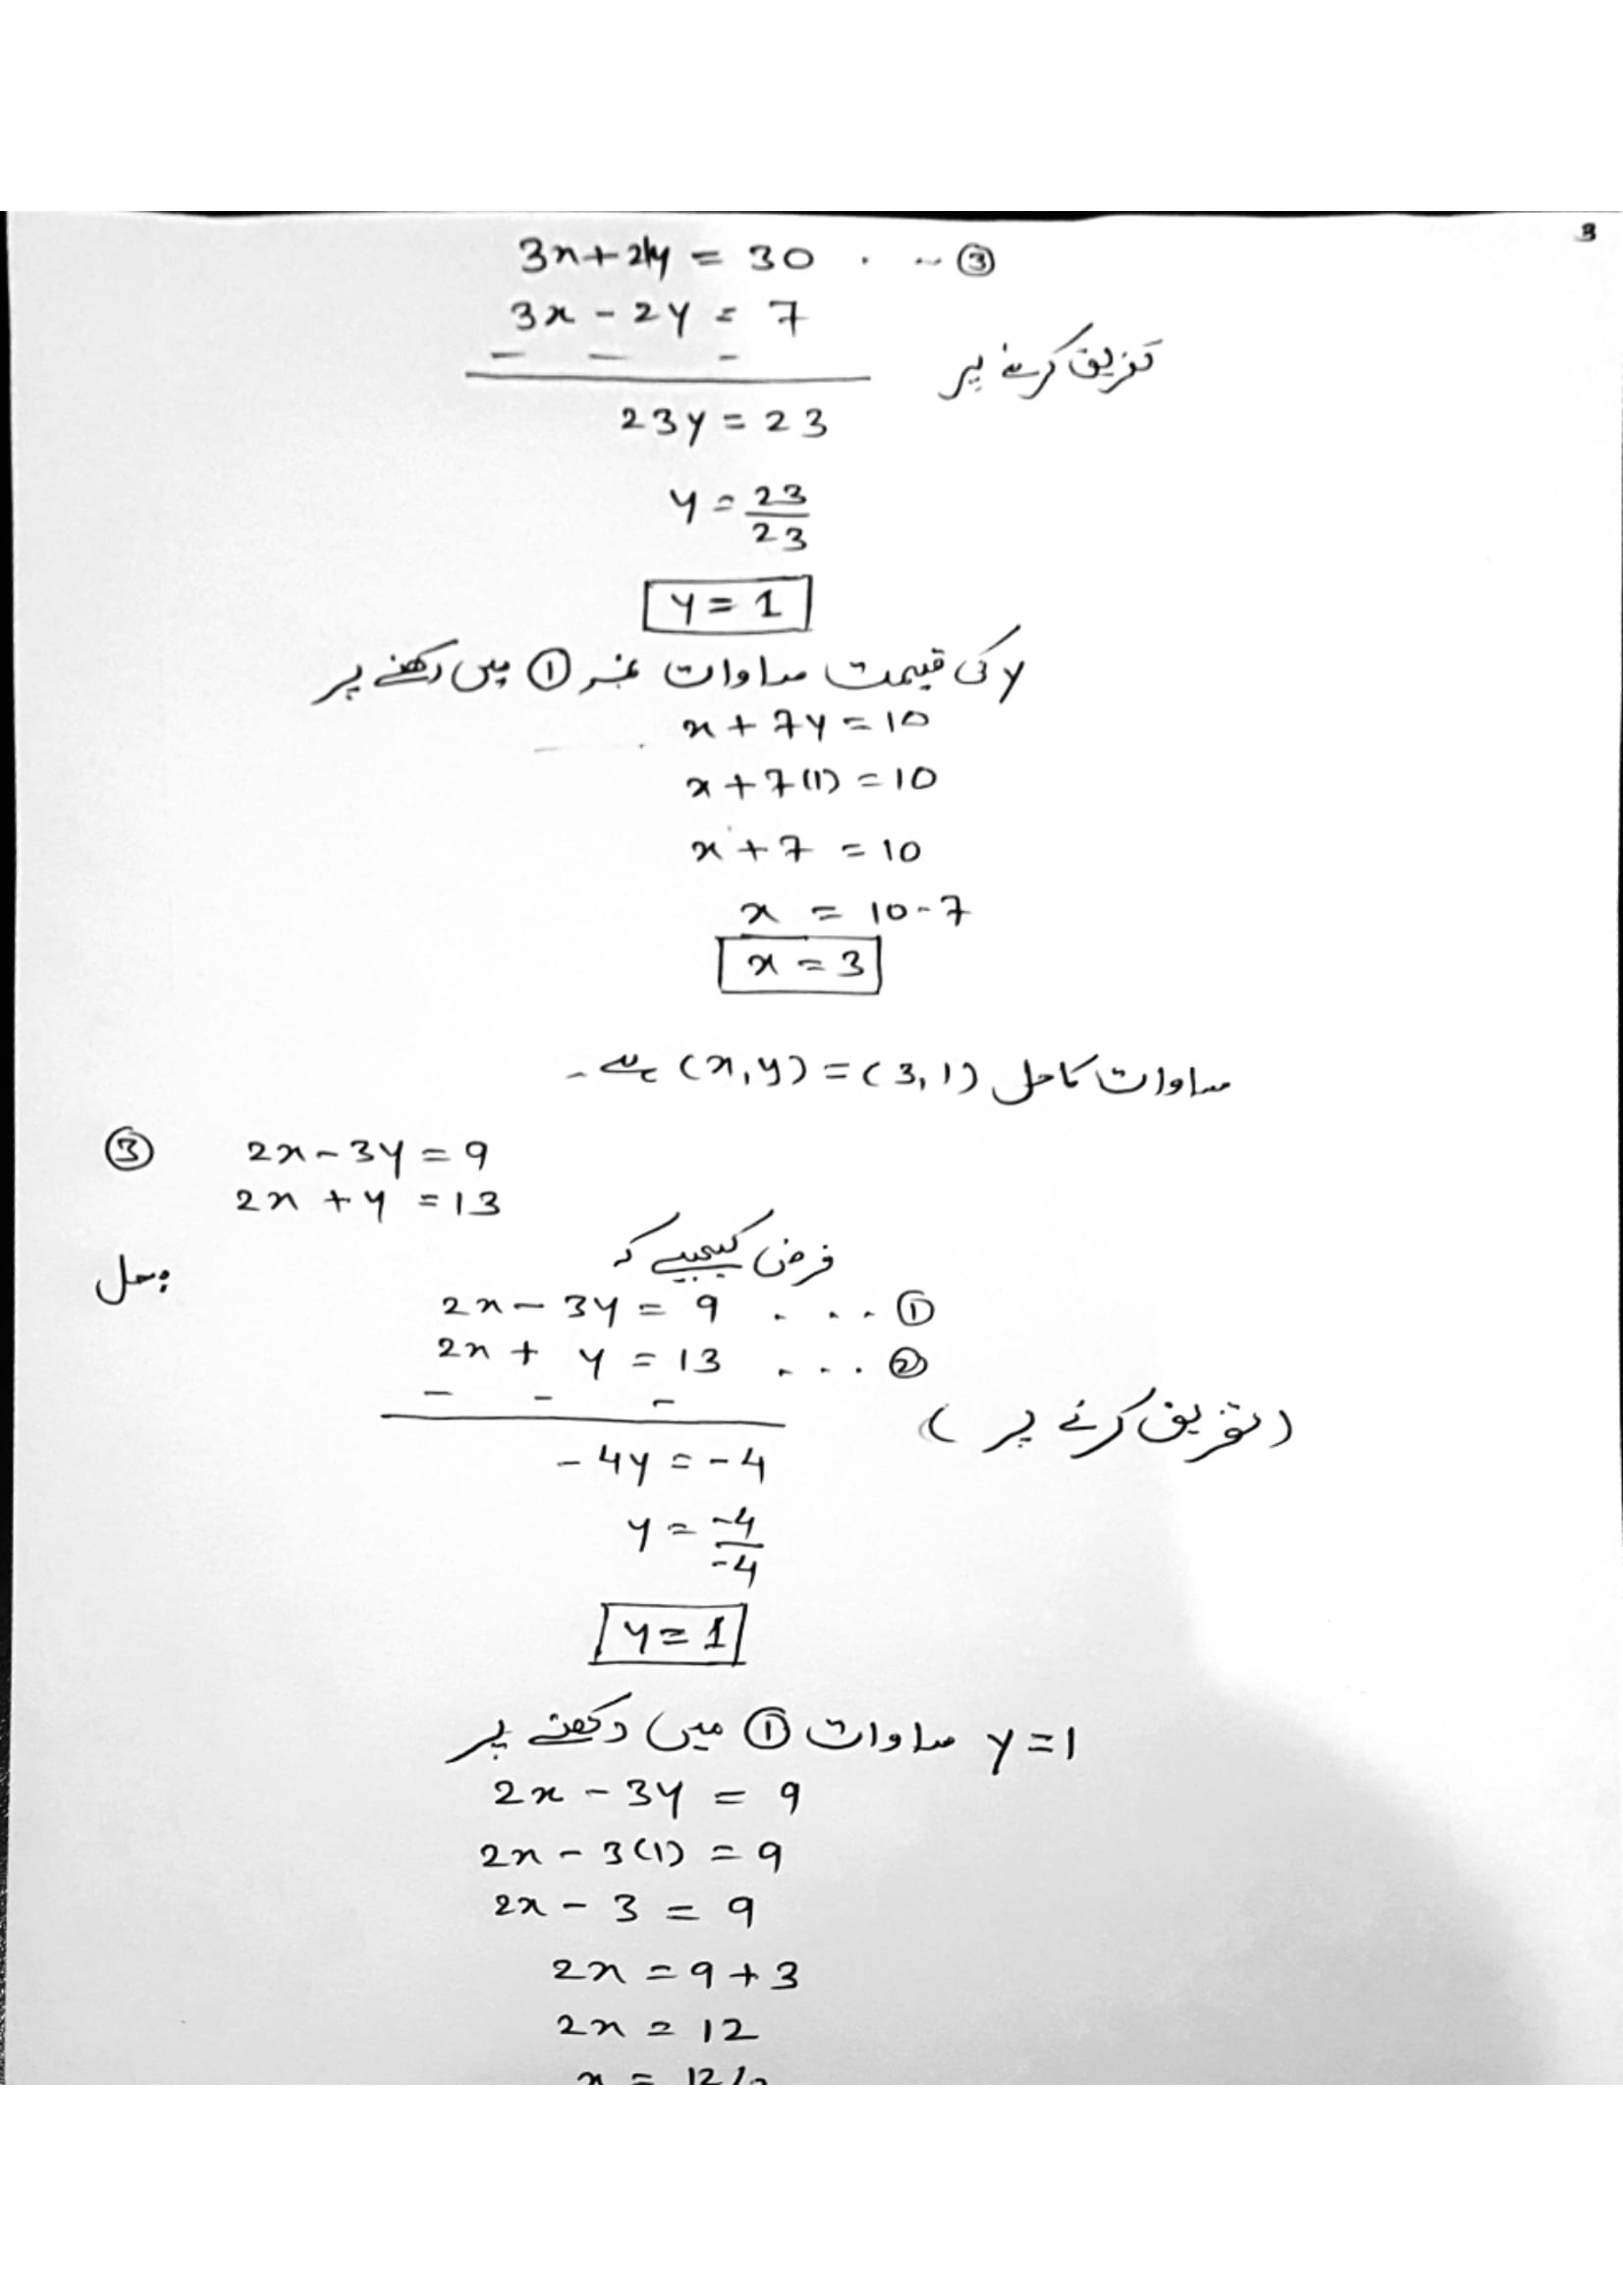 3
3x+21y = 30 . .. ③
3x - 2y = 7
- - -
تفریق کرنے پر
23y = 23
y = 23/23
y = 1
y کی قیمت مساوات نمبر ① میں رکھنے پر
x + 7y = 10
x + 7(1) = 10
x + 7 = 10
x = 10-7
x = 3
مساوات کا حل (x,y) = (3,1) ہے۔
③ 2x-3y = 9
2x + y = 13
حل:
فرض کیجیے کہ
2x - 3y = 9 . . . . ①
2x + y = 13 . . . . ②
- - -
(تفریق کرنے پر)
-4y = -4
y = -4/-4
y = 1
y=1 مساوات ① میں رکھنے پر
2x - 3y = 9
2x - 3(1) = 9
2x - 3 = 9
2x = 9+3
2x = 12
x = 12/2